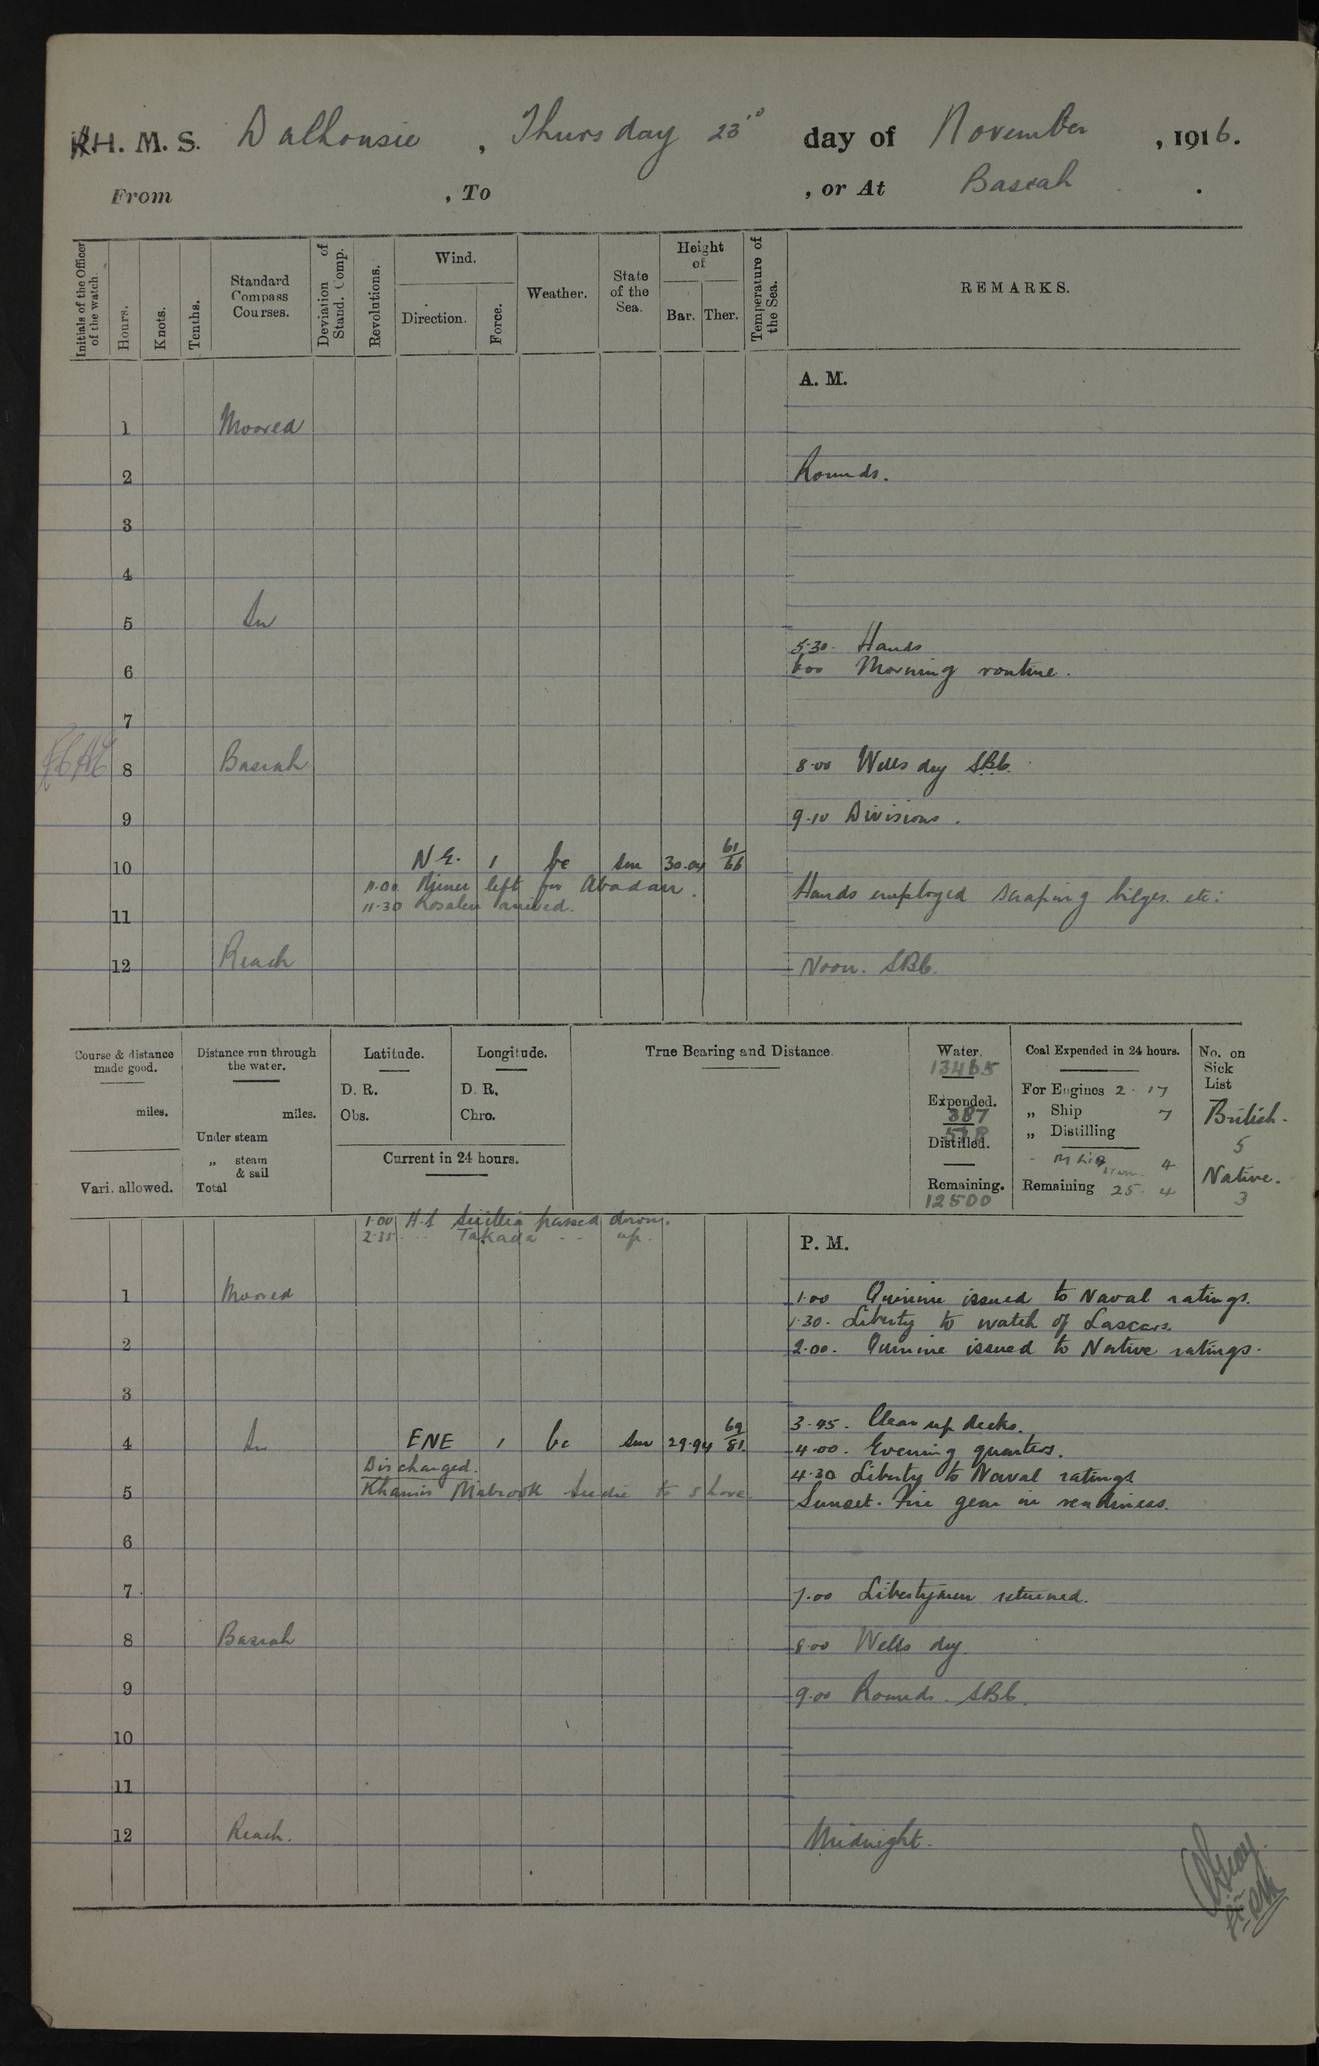 H. M. S. Dalhousie, Thursday 23rd day of November, 1916.
From , To , or At Basrah .
Initials of the Officer of the watch.
Hours.
Knots.
Tenths.
Standard Compass Courses.
Deviation of Stand. Comp.
Revolutions.
Wind.
Direction.
Force.
Weather.
State of the Sea.
Height of
Bar.
Ther.
Temperature of the Sea.
REMARKS.
A. M.
1 Moored
2 Rounds.
3
4
5 In
5.30. Hands
6 6.00 Morning routine.
7
8 Basrah 8.00 Wells dry SBC.
9 9.10 Divisions.
10 N E. 1 bc Sm 30.04 61/66
11.00 left for Abadan. Hands employed scraping bilges. etc:
11.30 arrived.
11
12 Reach Noon. SBC.
Course & distance made good.
miles.
Vari. allowed.
Distance run through the water.
miles.
Under steam
„ steam & sail
Total
Latitude.
D. R.
Obs.
Longitude.
D. R.
Chro.
Current in 24 hours.
True Bearing and Distance.
Water.
13465
Expended.
387
Distilled.
578
Remaining.
12500
Coal Expended in 24 hours.
For Engines 2. 17
„ Ship 7
„ Distilling
4
Remaining 25. 4
No. on Sick List
British.
5
Native.
3
1.00 H.S Sicilia passed down.
2.35 .. Takada .. up.
P. M.
1 Moored 1.00 Quinine issued to Naval ratings.
1.30. Liberty to watch of Lascars.
2 2.00. Quinine issued to Native ratings.
3
3.45. Clear up decks.
4 In ENE 1 bc Sm 29.94 69/81. 4.00. Evening quarters.
Discharged. 4.30 Liberty to Naval ratings
5 Khamis Mabrook Seedie to shore Sunset. Fire gear in readiness.
6
7 7.00 Libertymen returned.
8 Basrah 8.00 Wells dry
9 9.00 Rounds. SBC.
10
11
12 Reach. Midnight.